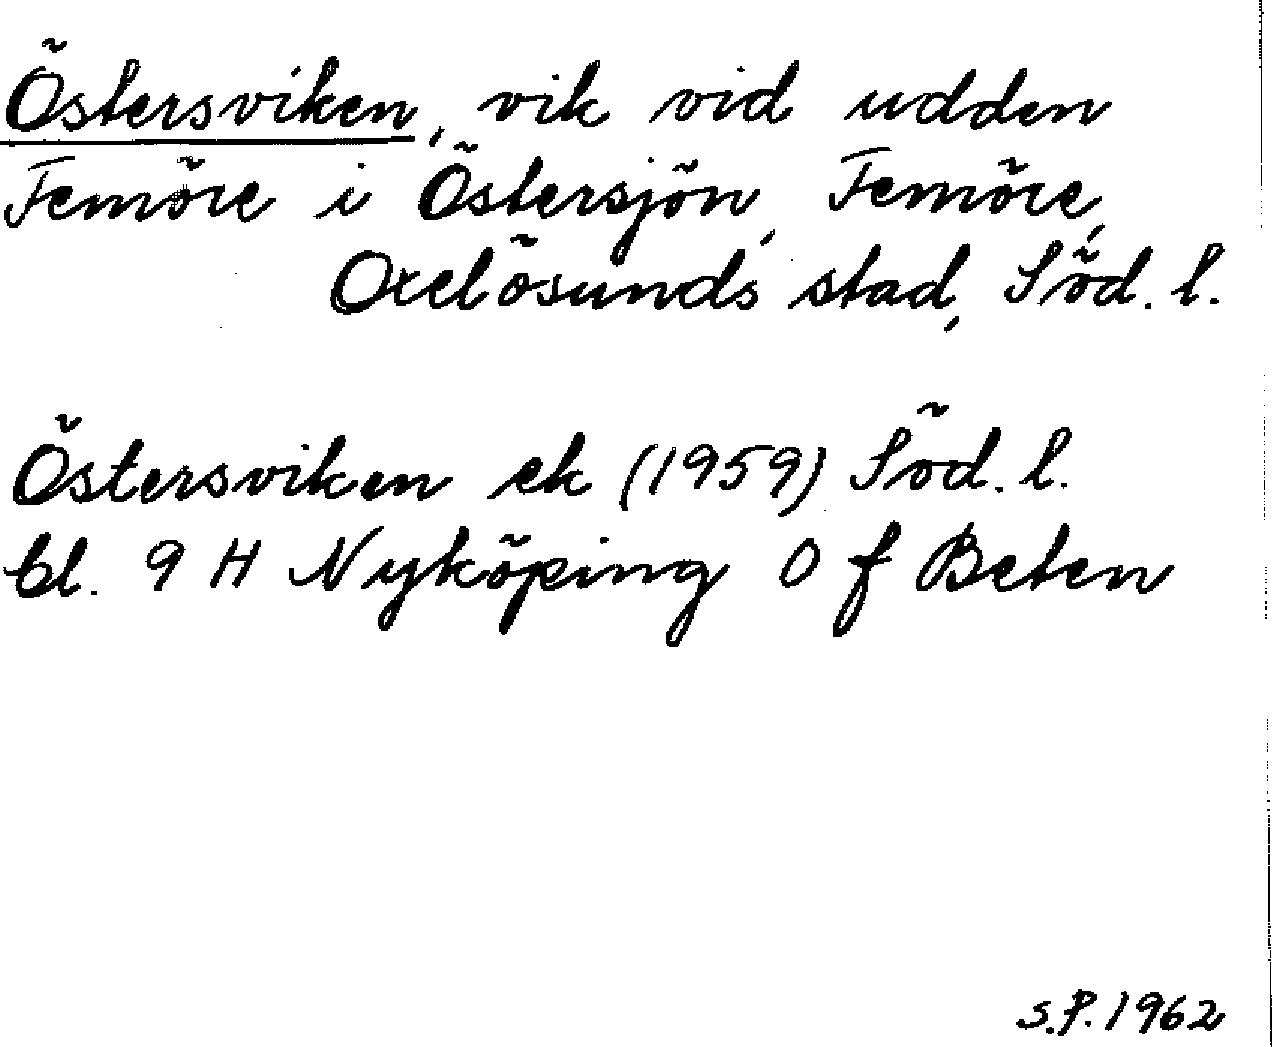 Östersviken, vik vid udden
Femöre i Östersjön, Femöre,
Oxelösunds stad, Söd. l.
Östersviken ek (1959) Söd. l.
bl. 9 H Nyköping 0 f Beten
S.P. 1962